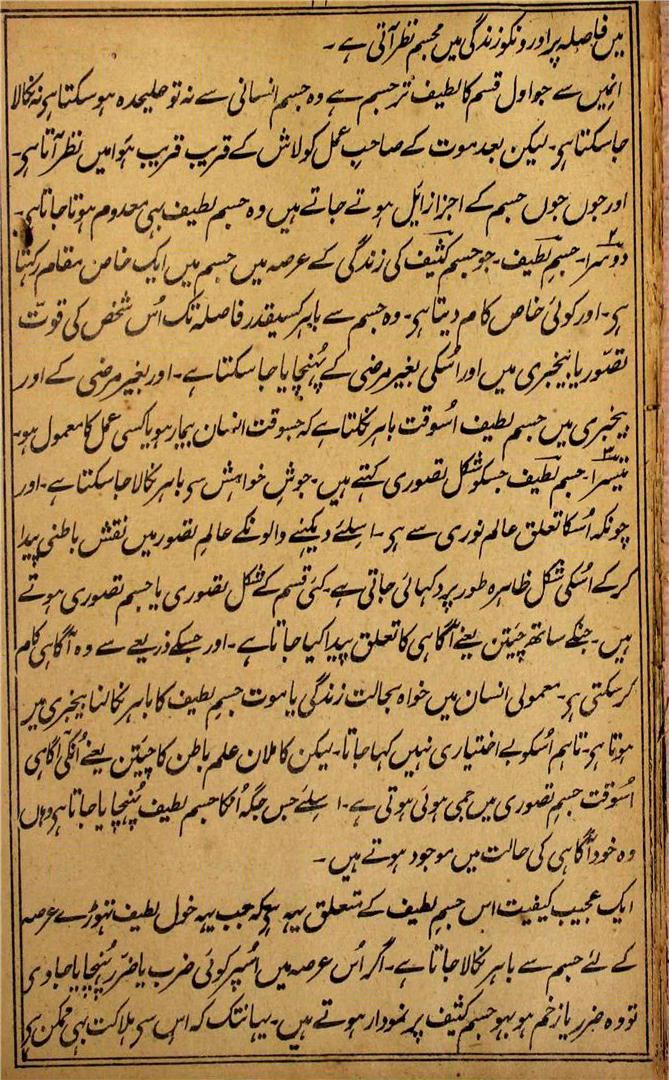 میں فاصلہ پر اور ونکو زندگی میں مجسم نظر آتی ہے۔
انمیں سے جو اول قسم کا لطیف تر جسم ہے وہ جسم انسانی سے نہ تو علیحدہ ہو سکتا ہی نہ نکالا
جا سکتا ہی۔ لیکن بعد موت کے صاحب عمل کو لاش کے قریب قریب ہوا میں نظر آتا ہی۔
اور جوں جوں جسم کے اجزا زایل ہوتے جاتے ہیں وہ جسم لطیف بہی معدوم ہوتا جاتا ہی۔
دوسرا۔ جسم لطیف۔ جو جسم کثیف کی زندگی کے عرصہ میں جسم میں ایک خاص مقام رکہتا
ہی۔ اور کوئی خاص کام دیتا ہی۔ وہ جسم سے باہر کسیقدر فاصلہ تک اُس شخص کی قوتّ
تصّور یا بیخبری میں اور اُسکی بغیر مرضی کے پُہنچایا جا سکتا ہے۔ اور بغیر مرضی کے اور
بیخبری میں جسم لطیف اسوقت باہر نکلتا ہے کہ جسوقت انسان بیمار ہو یا کسی عمل کا معمول ہو۔
تیسرا۔ جسم لطیف جسکو شکل تصّوری کہتے ہیں۔ جوش خواہش سی باہر نکالا جا سکتا ہے۔ اور
چونکہ اُسکا تعلق عالم نوری سے ہی۔ اسلئے دیکہنے والونکے عالم تصّور میں نقش باطنی پیدا
کر کے اُسکی شکل ظاہرہ طور پر دکہائی جاتی ہے۔ کئی قسم کے شکل تصّوری یا جسم تصّوری ہوتے
ہیں۔ جنکے ساتھ چیَتن یعنے آگاہی کا تعلق پیدا کیا جاتا ہے۔ اور جسکے ذریعے سے وہ آگاہی کام
کر سکتی ہی۔ معمولی انسان میں خواہ بحالت زندگی یا موت جسم لطیف کا باہر نکالنا بیخبری میں
ہوتا ہی۔ تاہم اُسکو بے اختیاری نہیں کہا جاتا۔ لیکن کاملان علم باطن کا چیَتن یعنے اُنکی آگاہی
اُسوقت جسم تصّوری میں جمی ہوئی ہوتی ہے۔ اسلئے جس جگہ اُنکا جسم لطیف پُہنچایا جاتا ہی وہاں
وہ خود آگاہی کی حالت میں موجود ہوتے ہیں۔
ایک عجیب کیفیت اس جسم لطیف کے متعلق یہہ ہیکہ جب یہہ خول لطیف تہوڑے عرصہ
کے لئے جسم سے باہر نکالا جاتا ہے۔ اگر اُس عرصہ میں اُسپر کوئی ضرب یا ضرر پُنہچایا جاوی
تو وہ ضرر یا زخم ہو بہو جسم کثیف پر نمودار ہوتے ہیں۔ یہانتک کہ اس سی ہلاکت بہی ممکن ہی